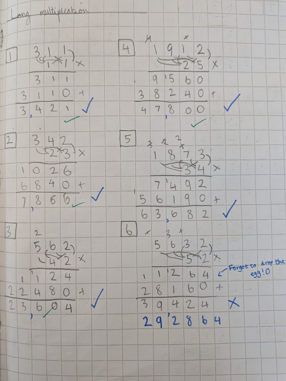 Long multiplication
1
3 1 1
1 1 x
3 1 1
3 1 1 0 +
3,4 2 1 ✓
2
3 4 2
2 3 x
1 0 2 6
6 8 4 0 +
7,8 6 6 ✓
3
2
5 6 2
4 2 x
1 1 2 4
2 2 4 8 0 +
2 3,6 0 4 ✓
4
1 9 1 2
2 5 x
9 5 6 0
3 8 2 4 0 +
4 7,8 0 0 ✓
5
2 2
1 8 7 3
3 4 x
7 4 9 2
5 6 1 9 0 +
6 3,6 8 2 ✓
6
3
5 6 3 2
5 2 x
1 1 2 6 4
2 8 1 6 0 +
3 9 4 2 4 x
2 9 2 8 6 4
Forgot to the
egg! 0